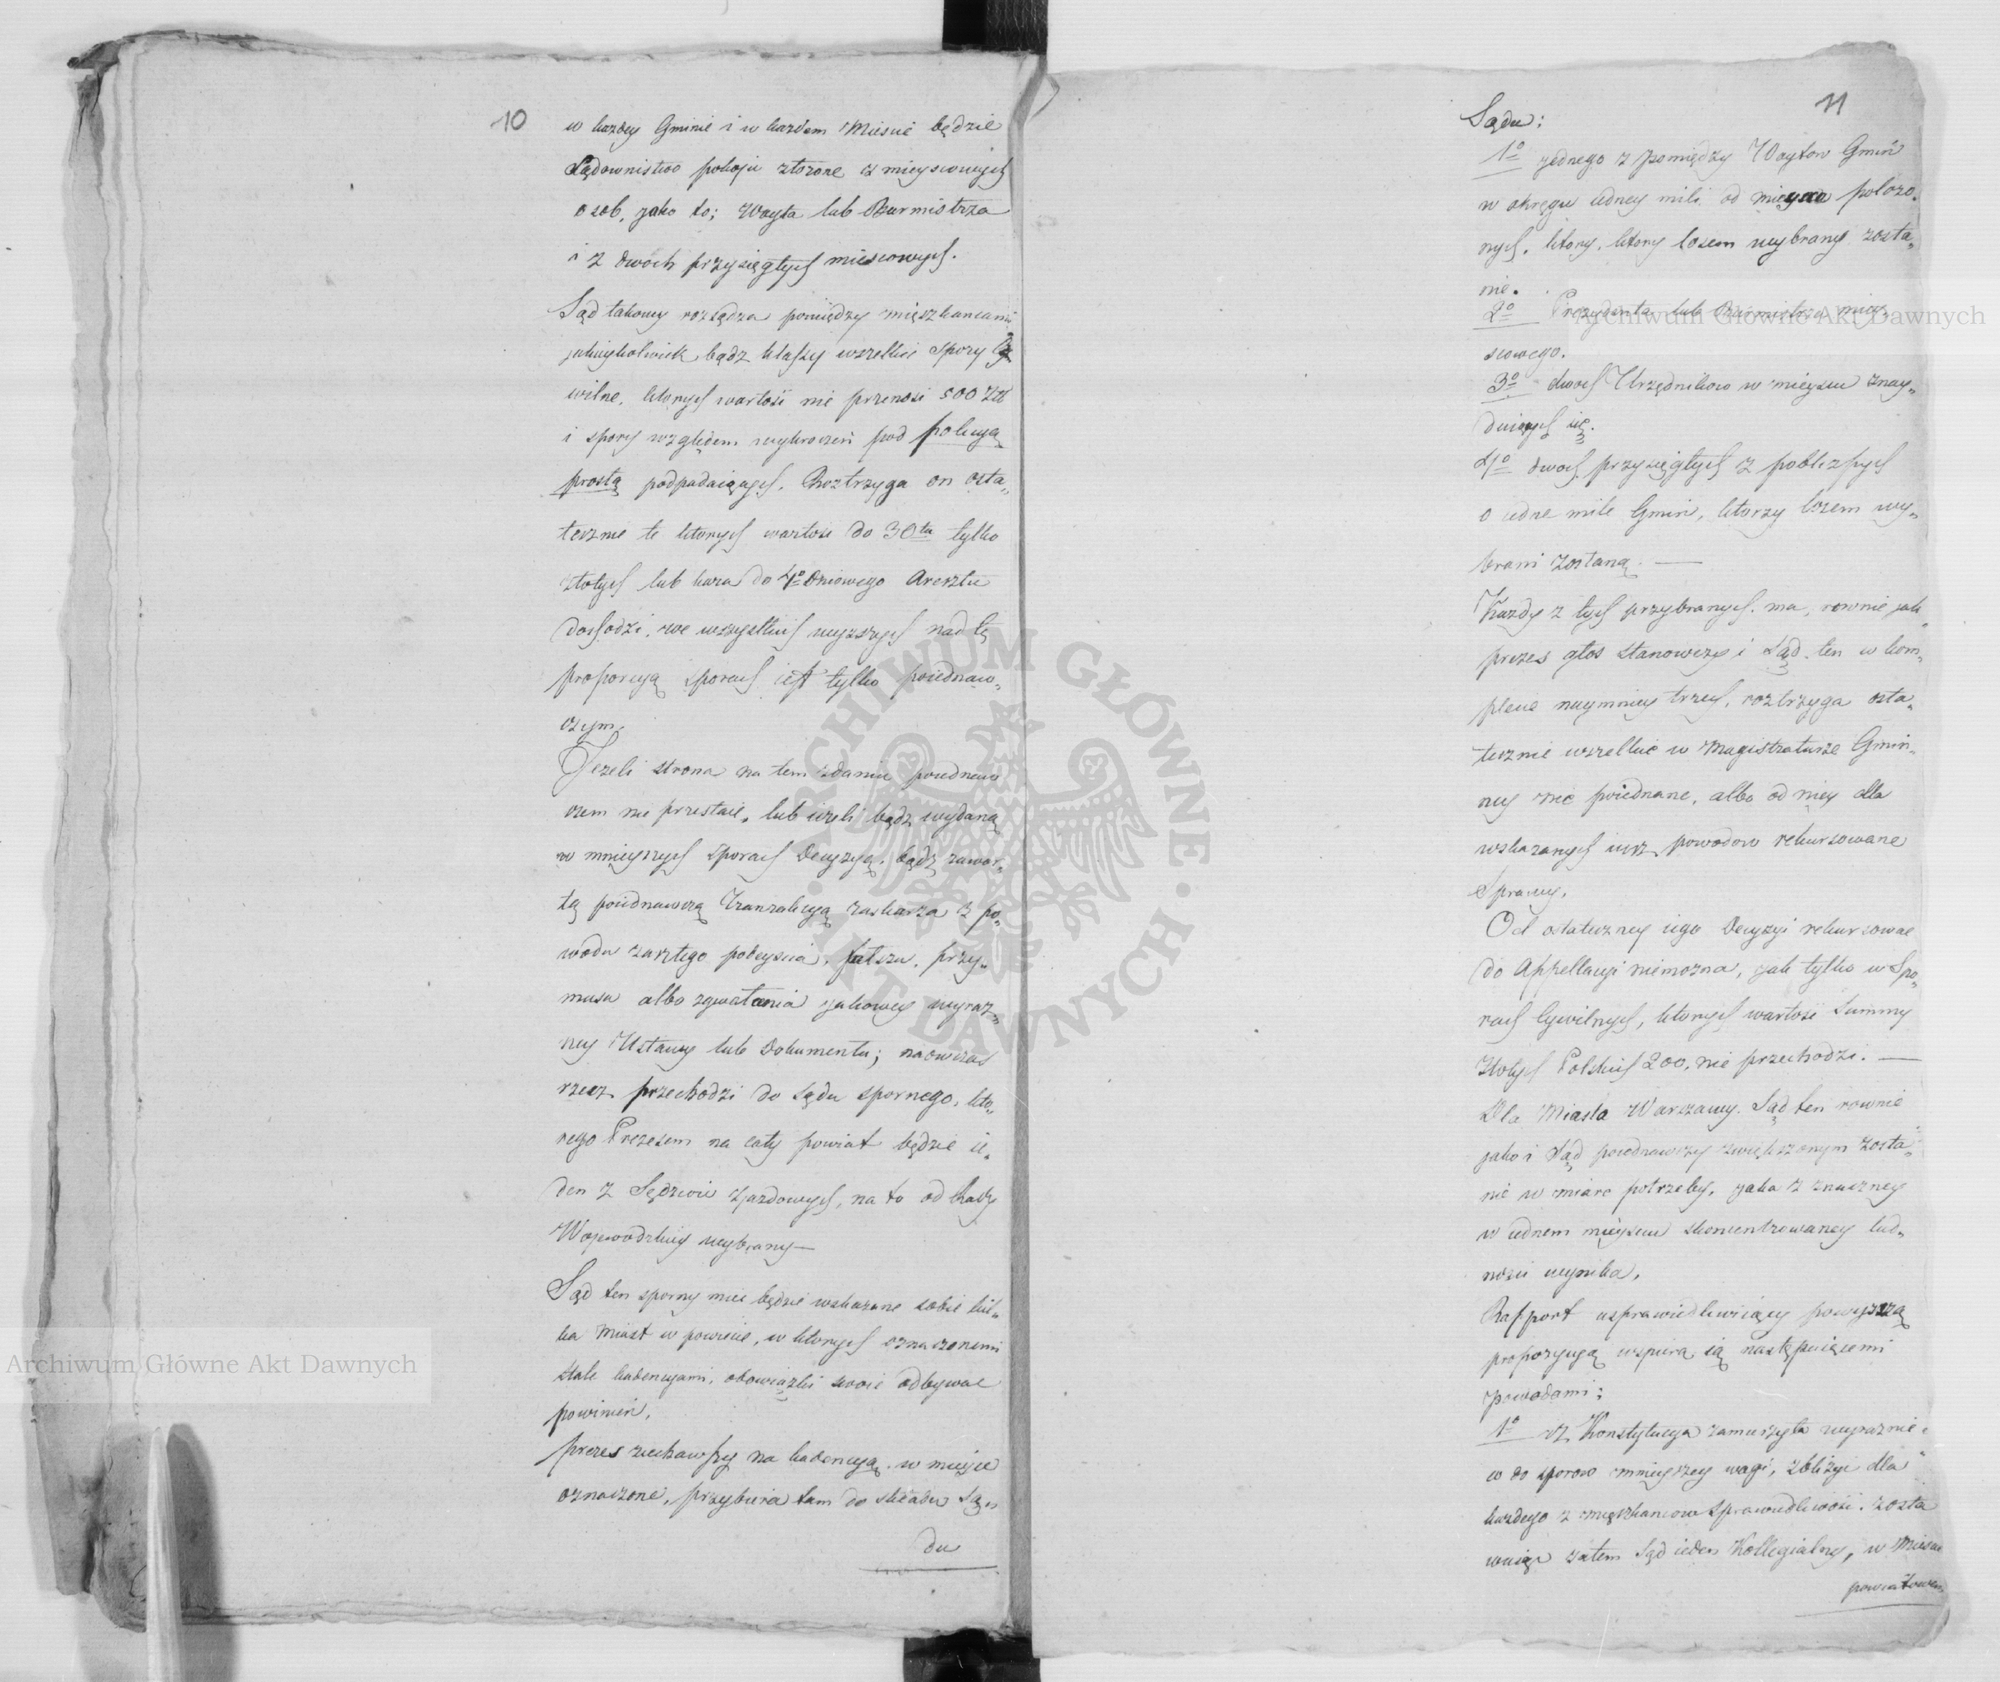 10
w każdey Gminie i w każdem Mieście będzie
Sądownistwo pokoju złożone z mieyscowych
osob, jako to; Woyta lub Burmistrza
i z dwoch przysięgłych miescowych.
Sąd takowy rozsądza pomiędzy mięszkancami
jakieykolwiek bądz klassy wszelkie spory Cy
wilne, ktorych wartość nie przenosi 500 Złł
i spory względem wykroczeń pod policyą
prostą podpadaiących. Roztrzyga on osta„
tecznie te ktorych wartość do 30tu tylko
złotych lub kara do 4o Dniowego Aresztu
dochodzi, we wszystkich wyższych nad tę
proporcyą sporach iest tylko poiednaw„
czym.
Jeżeli strona na tem zdaniu poiednaw
czem nie przestaie, lub ieżeli bądz wydaną
w mnieyszych sporach Decyzyą, bądz zawar„
tą poiednawczą Tranzakcyą zaskarża z po„
wodu zaszłego podeyscia, fałszu, przy„
musu albo zgwałcenia jakowey wyraz„
ney Ustawy lub Dokumentu; naowczas
rzecz przechodzi do Sądu spornego, kto„
rego Prezesem na cały powiat będzie ie„
den z Sędziow zjazdowych, na to od Rady
Wojewodzkiey wybrany—
Sąd ten sporny mieć będzie wskazane sobie kil„
ka Miast w powiecie, w ktorych oznaczonemi
stale kadencyami, obowiązki swoie odbywać
powinien,
prezes ziechawszy na kadencyą w mieysce
oznaczone, przybiera tam do składu Są„
du
11
Sądu:
1o jednego z pomiędzy Woytow Gmin
w okręgu iedney mili od mieysca położo„
nych, ktory, ktory losem wybrany zosta„
nie.
2o Prezydenta lub Burmistrza miey„
scowego.
3o dwoch Urzędnikow w mieyscu znay„
duiących się.
4o dwoch przysięgłych z pobliższych
o iedne mile Gmin, ktorzy losem wy„
brani zostaną. —
Każdy z tych przybranych ma, rownie jak
prezes głos stanowczy i Sąd ten w kom„
plecie naymniey trzech, roztrzyga osta„
tecznie wszelkie w Magistraturze Gmin„
ney nie poiednane, albo od niey dla
wskazanych wyż powodow rekursowane
Sprawy.
Od ostateczney iego Decyzyi rekursować
do Appellacyi niemożna, jak tylko w Spo„
rach Cywilnych, ktorych wartość Summy
Złotych Polskich 200, nie przechodzi. —
Dla Miasta Warszawy Sąd ten rownie
jako i Sąd poiednawczy zwiększonym zosta„
nie w miarę potrzeby, jaka z znaczney
w iednem mieyscu skoncentrowaney lud„
ności wynika,
Rapport usprawiedliwiaiący powyższą
propozycyą wspiera się następuiącemi
powodami:
1o iż Konstytucya zamierzyła wyraznie,
co do sporow mnieyszey wagi, zbliżyć dla
każdego z mięszkancow Sprawiedliwość. zosta
wuiąc zatem Sąd ieden Kollegialny, w Mieście
powiatowem
Archiwum Główne Akt Dawnych
Archiwum Główne Akt Dawnych
ARCHIWUM GŁÓWNE · AKT DAWNYCH ·